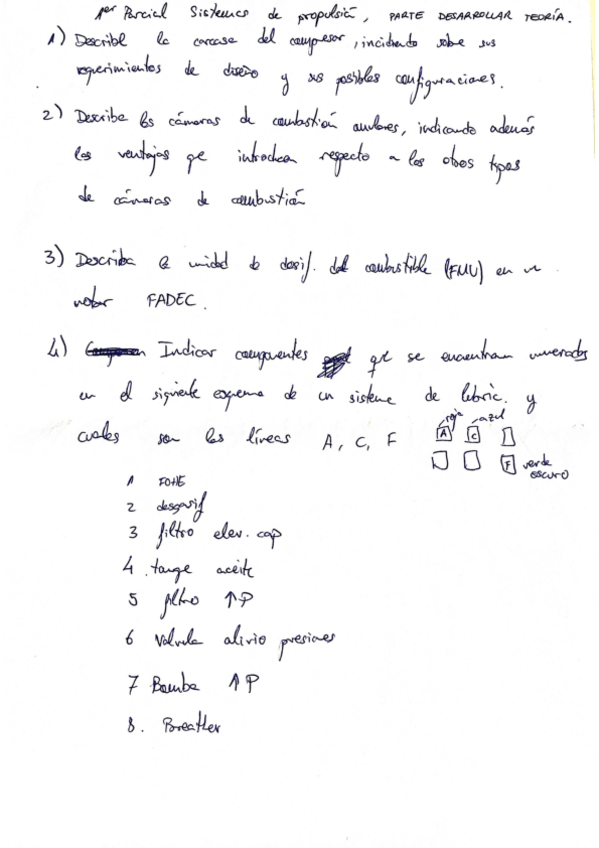 1er Parcial Sistemas de propulsión, PARTE DESARROLLAR TEORÍA.
1) Describe la carcasa del compresor, incidiendo sobre sus
requerimientos de diseño y sus posibles configuraciones.
2) Describa las cámaras de combustión anulares, indicando además
las ventajas que introducen respecto a los otros tipos
de cámaras de combustión
3) Describa la unidad de dosif. del combustible (FMU) en un
motor FADEC.
4) Indicar componentes que se encuentran numerados
en el siguiente esquema de un sistema de lubric. y
cuales son las líneas A, C, F
roja azul
A C
F verde oscuro
1 FOHE
2 desgasif
3 filtro elev. cap
4 tanque aceite
5 filtro ↑P
6 Valvula alivio presiones
7 Bomba ↑P
8. Breather